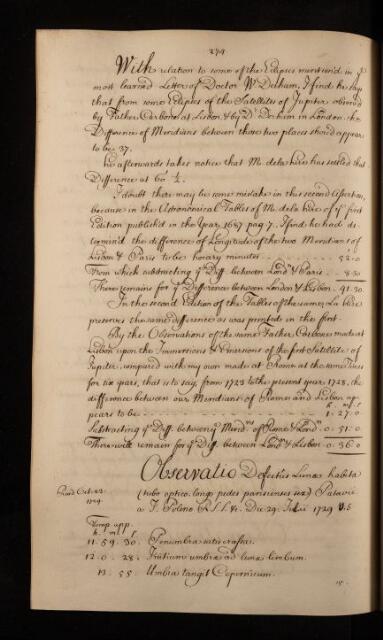 274
With relation to some of the Eclipses mention'd in ye
most learned Letter of Doctor Wm Derham, I find he says
that from some Eclipses of the Satellites of Jupiter observ'd
by Father Carbone at Lisbon & by Dr Derham in London the
Difference of Meridians between those two places should appear
to be 37.
he afterwards takes notice that Mr. dela hire has settled that
Difference at 60' ½.
I doubt there may be some mistake in the second assertion,
because in the Astronomical Tables of Mr. dela hire of ye first
Edition publish'd in the Year 1687 pag 7. I find he had de-
termin'd the difference of Longitude of the two Meridians of
Lisbon & Paris to be horary minutes
From which subtracting ye Diff. between Lond. & Paris
There remains for ye Difference between London & Lisbon
In the second Edition of the Tables of the same, La hire
preserves the same difference as was printed in the first
By the Observations of the same Father Carbone made at
Lisbon upon the Immersions & Emersions of the first Satellite of
Jupiter, compared with my own made at Rome at the same Times
for six years, that is to say, from 1723 to the present year 1728, the
difference between our Meridians of Rome and Lisbon ap-
pears to be 1. 27. 0
Subtracting ye Diff. between ye Merid.ns of Rome & Lond.n 0. 51. 0
There will remain for ye Diff. between Lond.n & Lisbon 0. 36. 0
Observatio Defectus Lunæ habita
(tubo optico longo pedes parisienses) Patavii
a J. Poleno R.S.S. &c. Die 29. 1729 V.S
Read Oct. 23.
1729.
Temp. app.
h. m. s.
11. 59. 30. Penumbra satis crassa.
12. 0. 28. Initium umbræ ad lunæ limbum.
13. 55. Umbra tangit Copernicum.